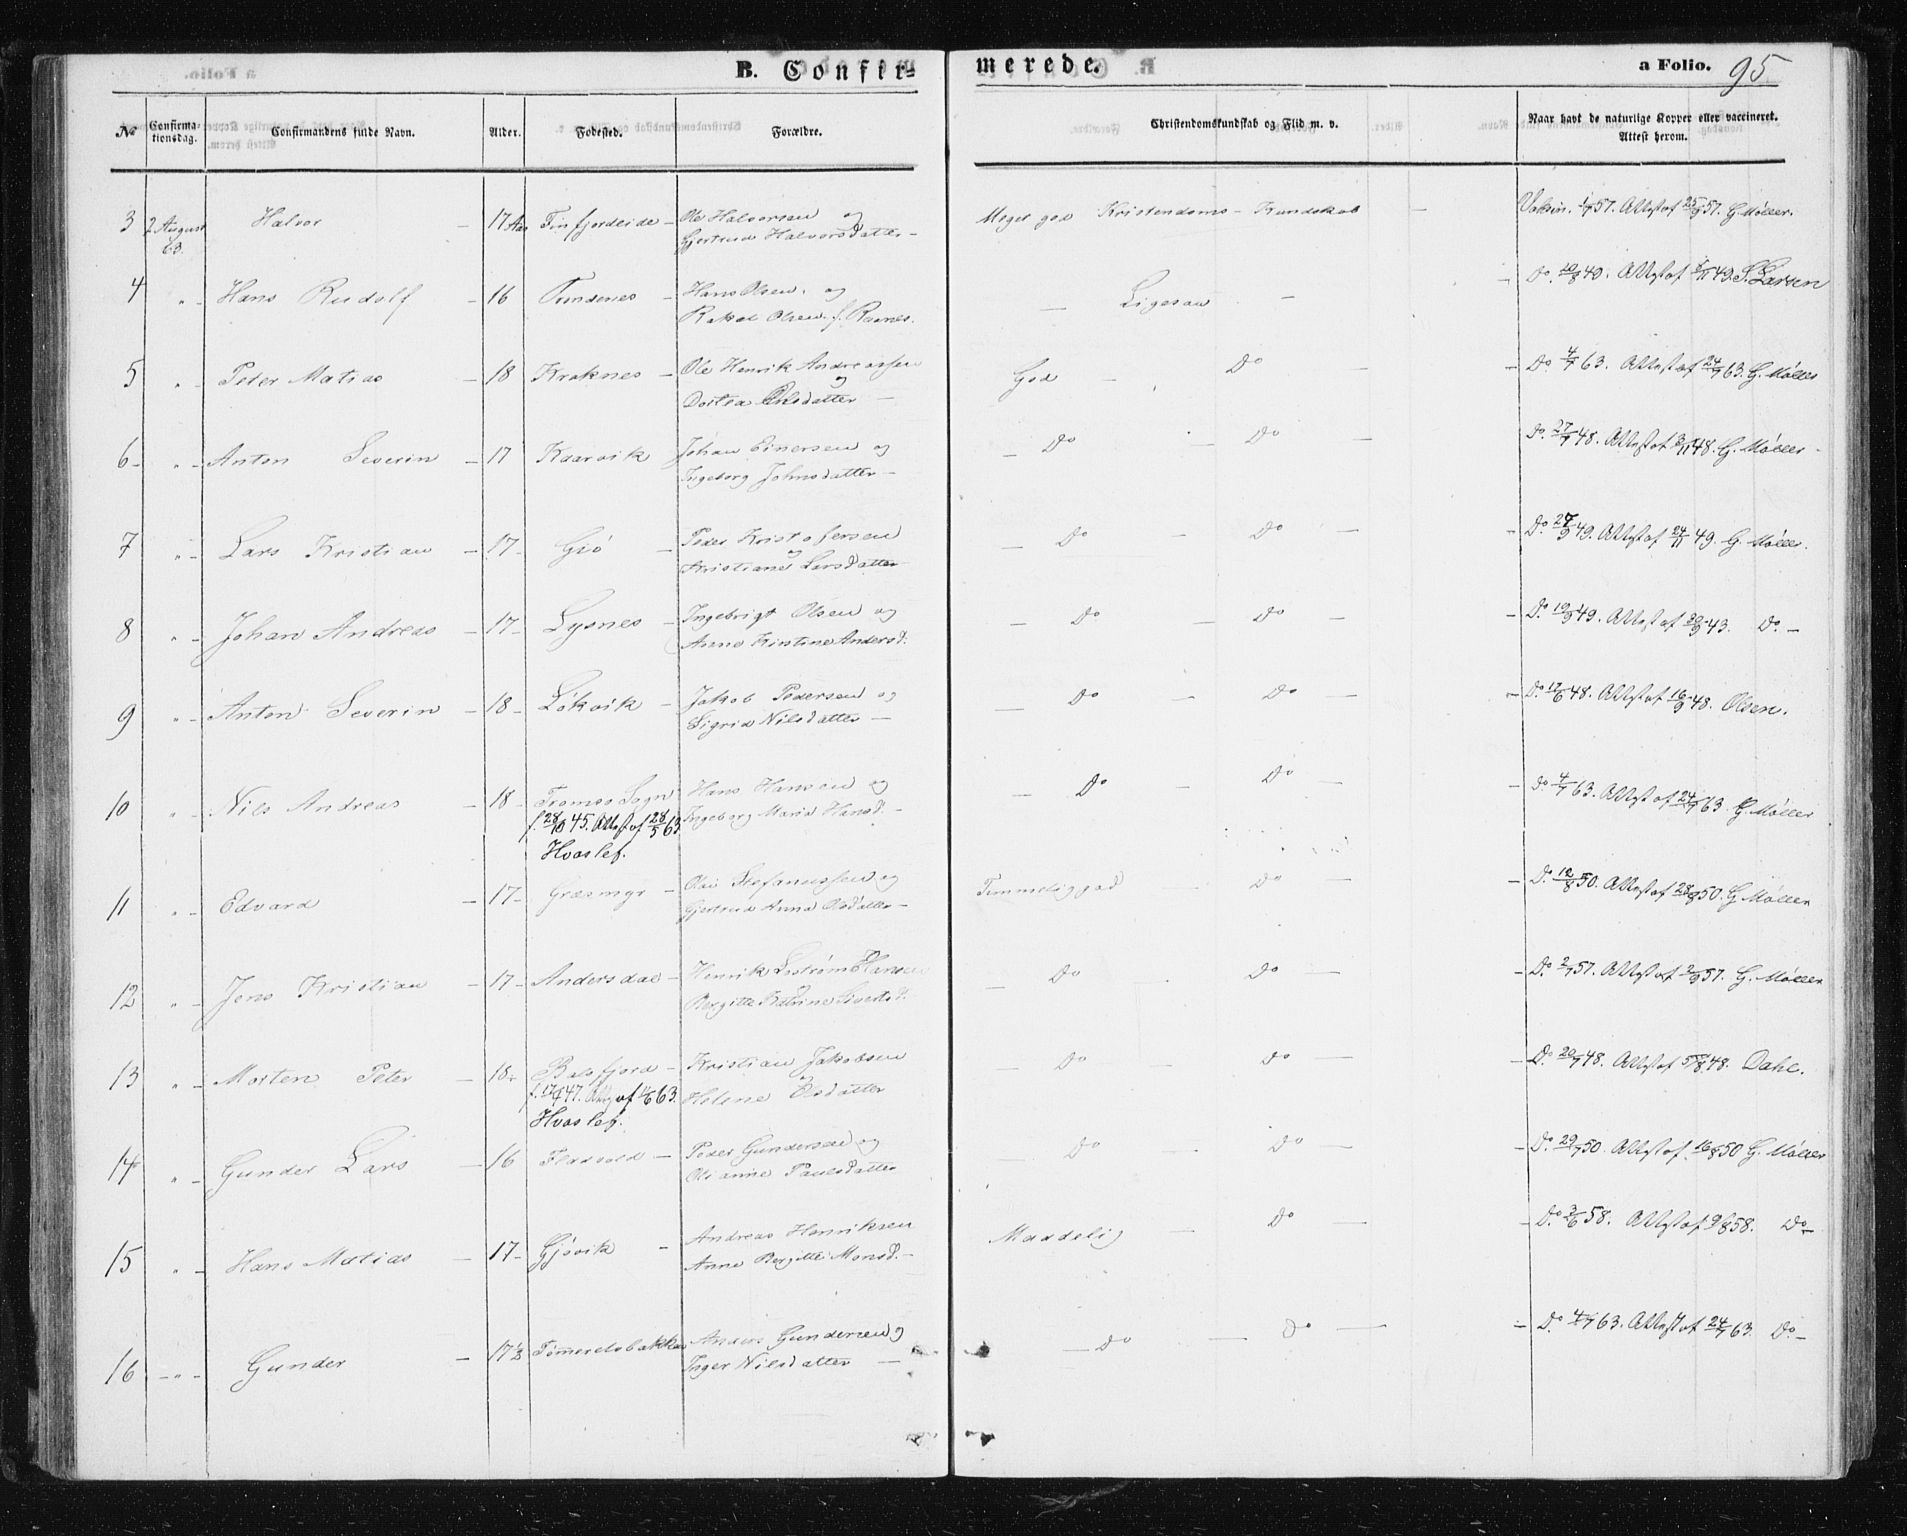 B. Confir-
merede.
a Folio. 95
No Confirmationsdag. Confirmandens fulde Navn. Alder. Fødested. Forældre. Christendomskundskab og Flid m. v. Naar havt de naturlige Kopper eller vaccineret. Attest herom.
3 2 August 63. Halvor - 17 Aar Finfjordeide - Ole Halvorsen og
Gjertrud Halvorsdatter -
Meget god Kristendoms-Kundskab - Vaksin. 1/7 57. Attest af 25/9 57. G. Møller.
4 " - Hans Rudolf - 16 Tundenes - Hans Olsen og
Rakel Olsen f. Raanes.
- Ligesaa - - Do. 10/8 49. Attest af 8/11 49. S. Larsen
5 " - Peter Matias - 18 Kraknes - Ole Henrik Andreassen
og
Dortea Olsdatter -
God - Do - - Do. 4/7 63. Attest af 24/7 63. G. Møller
6 - " - Anton Severin - 17 Kaarvik Johan Einersen og
Ingeborg Johnsdatter -
- Do - Do - Do. 27/7 48. Attest af 3/11 48. G. Møller -
7 " - Lars Kristian - 17 - Giø - Peder Kristofersen
og
Kristiane Larsdatter
- Do - Do - Do. 27/9 49. Attest af 24/11 49. G. Møller.
8 " - Johan Andreas - 17 - Lysnes - Ingebrigt Olsen og
Anne Kirstine Andersd.
- Do - Do - - Do. 19/9 49. Attest af 30/9 43. Do. -
9 " - Anton Severin - 18 - Løkvik - Jakob Pedersen og
Sigrid Nilsdatter -
- Do - Do - - Do. 17/6 48. Attest af 16/9 48. Olsen.
10 " - Nils Andreas - 18 - Tromsø Sogn Hans Hansen og
f. 28/10 45. Attest af 28/5 63. Ingeborg Maria Hansd. -
Hvoslef.
- Do - Do - - Do 4/7 63. Attest af 24/7 63 G. Møller
11 " - Edvard - 17 - Græsmyr - Olai Stefanussen og
Gjertrud Anna Olsdatter -
Temmelig god - Do - - Do. 12/8 50. Attest af 28/9 50. G. Møller
12 " - Jens Kristian - 17 - Andersdal - Henrik Hansen
Bergitte Katrine Sivertsd.
- Do - Do - - Do. 2/7 57. Attest af 2/9 57. G. Møller
13 " - Morten Peter - 18 - Balsfjord - Kristian Jakobsen
og
f. 17/7 47. Attest af 63. Helene Olsdatter
Hvoslef.
- Do - Do - - Do. 20/7 48. Attest af 5/8 48. Dahl.
14 " - Gunder Lars - 16 Fladvold - Peder Gundersen og
Olianne Paulsdatter
- Do - Do - - Do. 29/7 50. Attest af 16/8 50 G. Møller
15 " - Hans Matias - 17 - Gjøvik - Andreas Henriksen
Anne Bergitte Monsd. -
Maadelig - Do - - Do. 3/6 58. Attest af 9/8 58. Do -
16 - " - Gunder - 17½ Tømmerelvbakken Anders Gundersen og
Inger Nilsdatter -
- Do - Do - - Do. 4/7 63. Attest af 24/7 63. Do. -